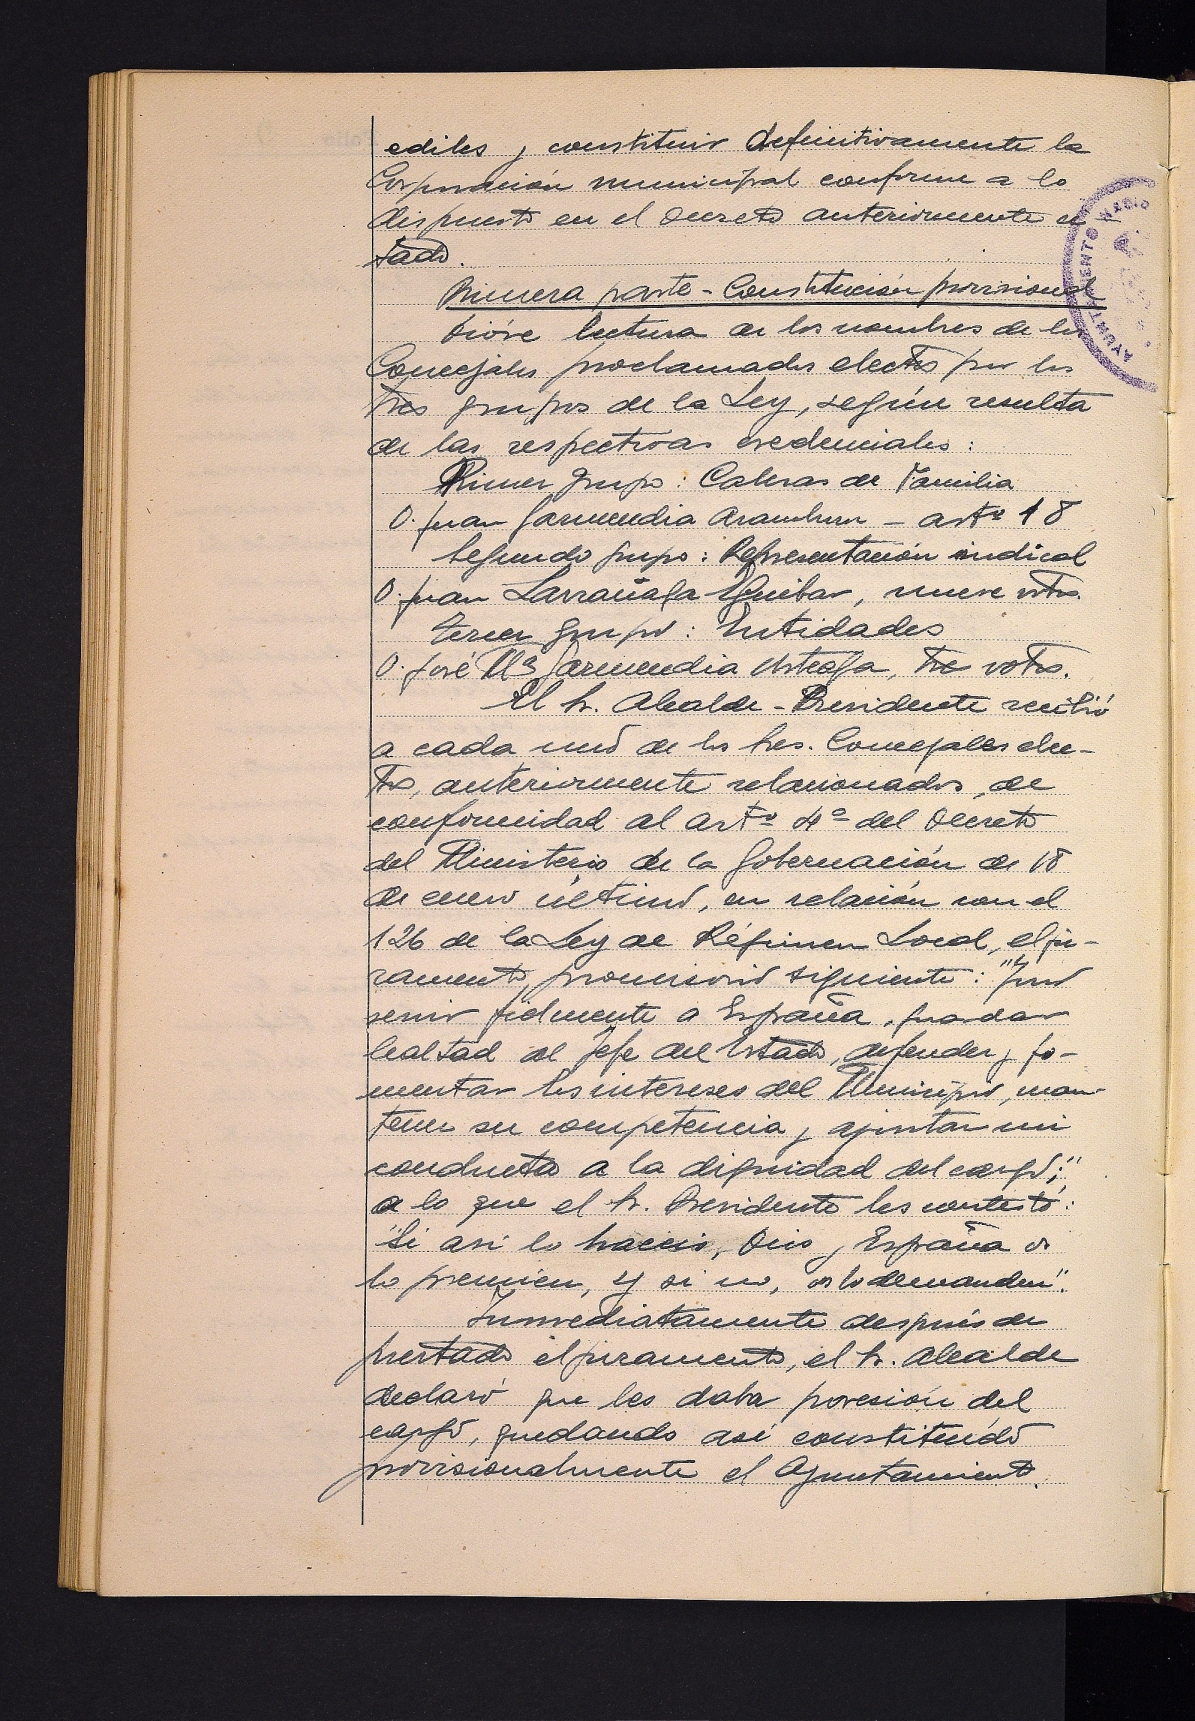 ediles y constituir definitivamente la
Corporación municipal conforme a lo
dispuesto en el Decreto anteriormente ci
tado.
Primera parte - Constitución provisional
Dióse lectura de los nombres de los
Concejales proclamados electos por los
tres grupos de la Ley, según resulta
de las respectivas credenciales:
Primer grupo: Cabezas de Familia
D. Juan Garmendia Aramburu - artº 18
Segundo grupo: Representación sindical
D. Juan Larrañaga Eguibar, nueve votos.
Tercer grupo: Entidades
D. José Mª Garmendia Arteaga, tres votos.
El Sr. Alcalde-Presidente recibió
a cada uno de los tres. Concejales elec-
tos, anteriormente relacionados, de
conformidad al artº 4º del Decreto
del Ministerio de la Gobernación de 18
de enero último, en relación con el
126 de la Ley de Régimen Local, el ju-
ramento promisorio siguiente: "Juro
servir fielmente a España, guardar
lealtad al Jefe del Estado, defender y fo-
mentar los intereses del Municipio, man-
tener su competencia y ajustar mi
conducta a la dignidad del cargo;"
a lo que el Sr. Presidente les contestó:
"Si así lo hacéis, Dios y España os
lo premien, y si no, os lo demanden".
Inmediatamente después de
prestado el juramento, el Sr. Alcalde
declaró que les daba posesión del
cargo, quedando así constituído
provisionalmente el Ayuntamiento.
AYUNTAMIENTO